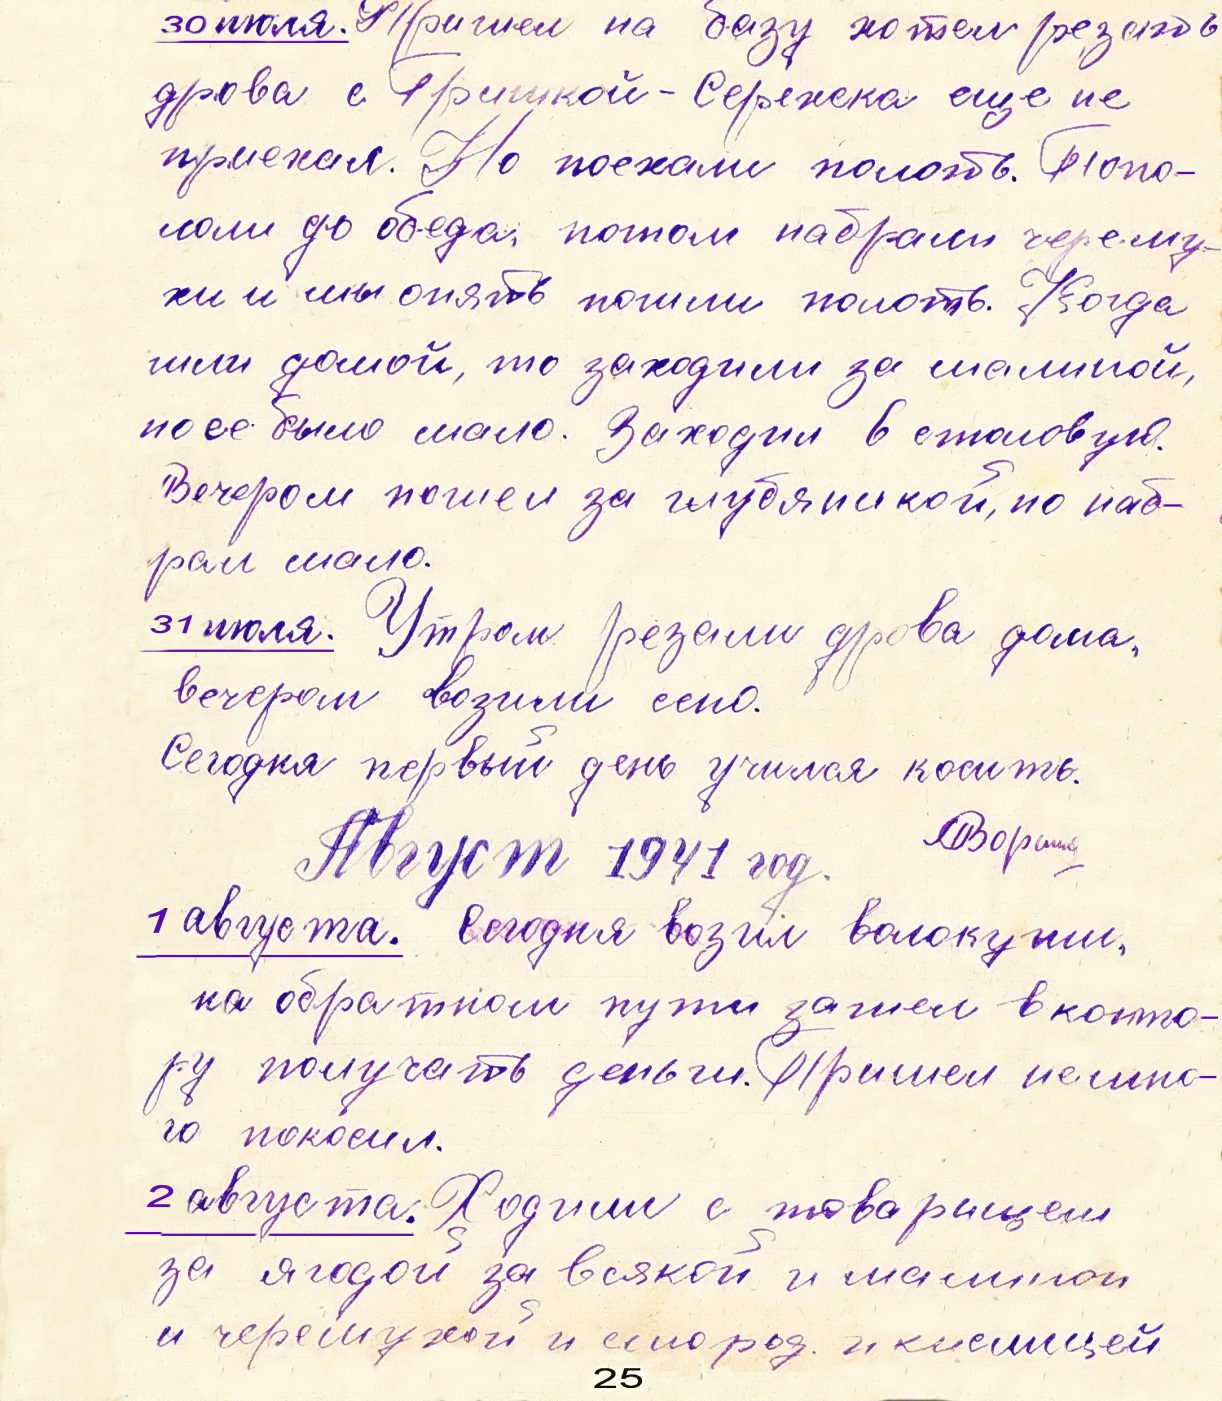 30 июля. Пришел на базу хотел резать
дрова с Гришкой - Сережека еще не
приехал. Но поехали полоть. Попо-
лоли до обеда, потом набрали черему-
хи и мы опять пошли полоть. Когда
шли домой, то заходили за малиной,
но ее было мало. Заходил в столовую.
Вечером пошел за глубяникой, но наб-
рал мало.
31 июля. Утром резали дрова дома,
вечером возили сено.
Сегодня первый день учился косить.
Август 1941 год.
1 августа. Сегодня возил волокуши,
на обратном пути зашел в конто-
ру получать деньги. Пришел немно-
го покосил.
2 августа. Ходили с товарищем
за ягодой за всякой и малиной
и черемухой и смород. и кислицей
25